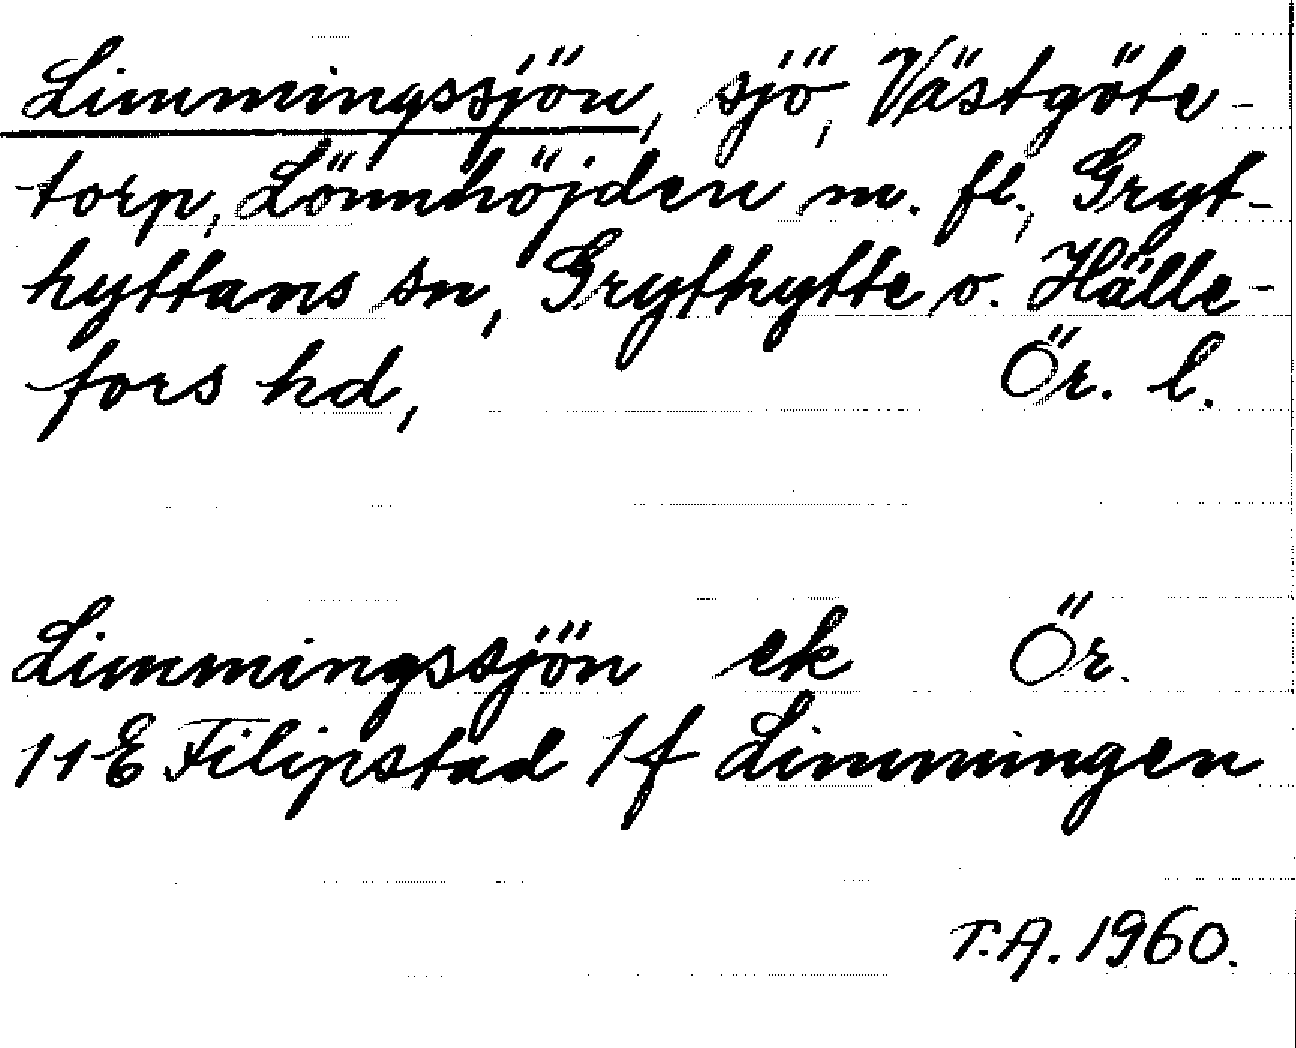 Limmingssjön, sjö, Västgöte-
torp, Lönnhöjden m. fl., Gryt-
hyttans sn, Grythytte o. Hälle-
fors hd, Ör. l.
Limmingssjön ek Ör.
11E Filipstad 1f Limmingen
T.A. 1960.